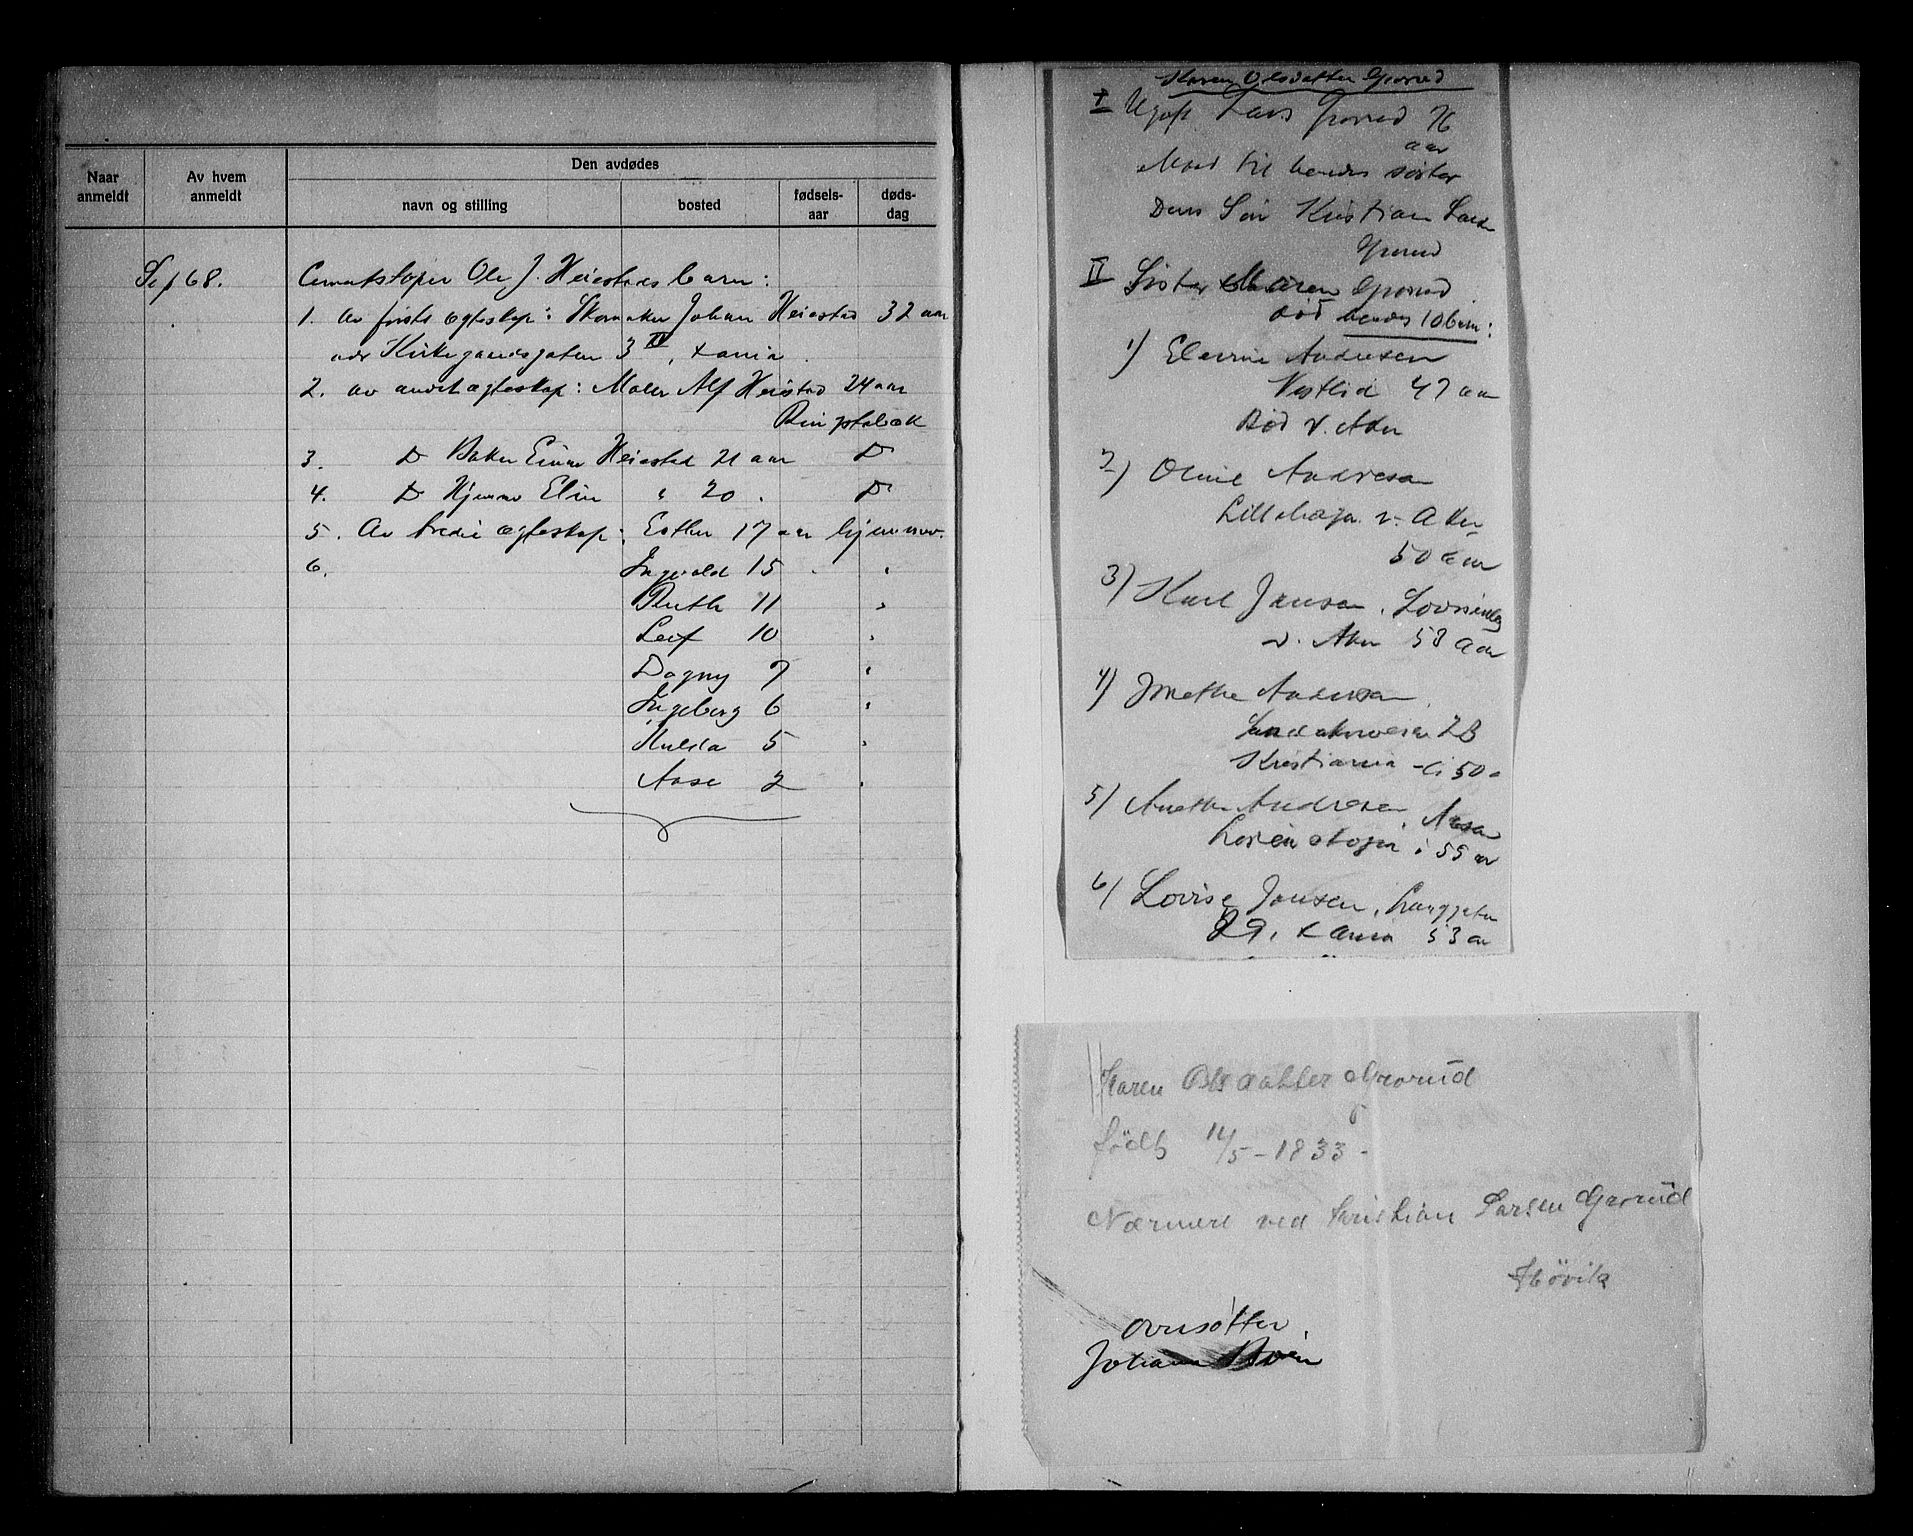 Naar
anmeldt
Av hvem
anmeldt
Den avdødes
navn og stilling
bosted
fødsels-
aar
døds-
dag
Se p 68.
Cementstøper Ole J. Heiestads barn:
1. av første egteskap: Skomaker Johan Heiestad 32 aar
adr Kirkegaardsgaten 3 IV, Xania.
2. av andet egteskap: Maler Alf Heiestad 24 aar
Ringstabæk
3. D Baker Einar Heiestad 21 aar D
4. D Hjemme Elin " 20. D
5. Av tredie egteskap: Esther 17 aar hjemmev.
6. Ingvald 15 "
Ruth 11 "
Leif 10 "
Dagny 7 "
Ingeborg 6 "
Hulda 5 "
Aase 2 "
Karen Olsdatter Grorud
I Ugift Lars Grorud 76
aar
Mand til hendes søster
Dens Søn Kristian Larsen
Grorud
II Søster Maren Grorud
død hendes 10 barn:
1) Andresen
Vestlid 47 aar
Bød v. Aker
2) Oline Andresen
Lillehagen v. Aker
50 aar
3) Karl Jansen,
v. Aker 58 aar
4) Andersen
Sandakerveien 2B
Kristiania 50
5) Anethe Andresen,
55 aar
6) Lovise Jansen, Langgaten
29, Xania 53 aar
Karen Olsdatter Grorud
født 14/5 - 1833 -
Nærmere ved Kristian Larsen Grorud
Høvik
oversitter,
Johan